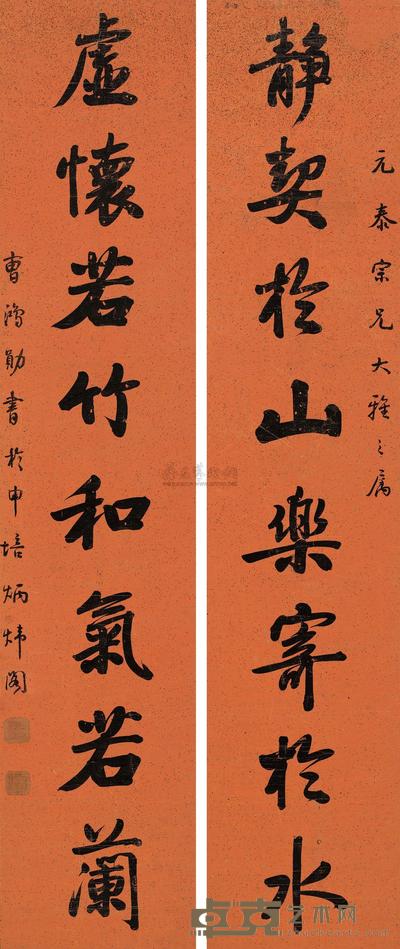 元泰宗兄大雅之属
靜契於山樂寄於水
虛懷若竹和氣若蘭
曹鴻勛書於申培炳炜阁
卓克艺术网